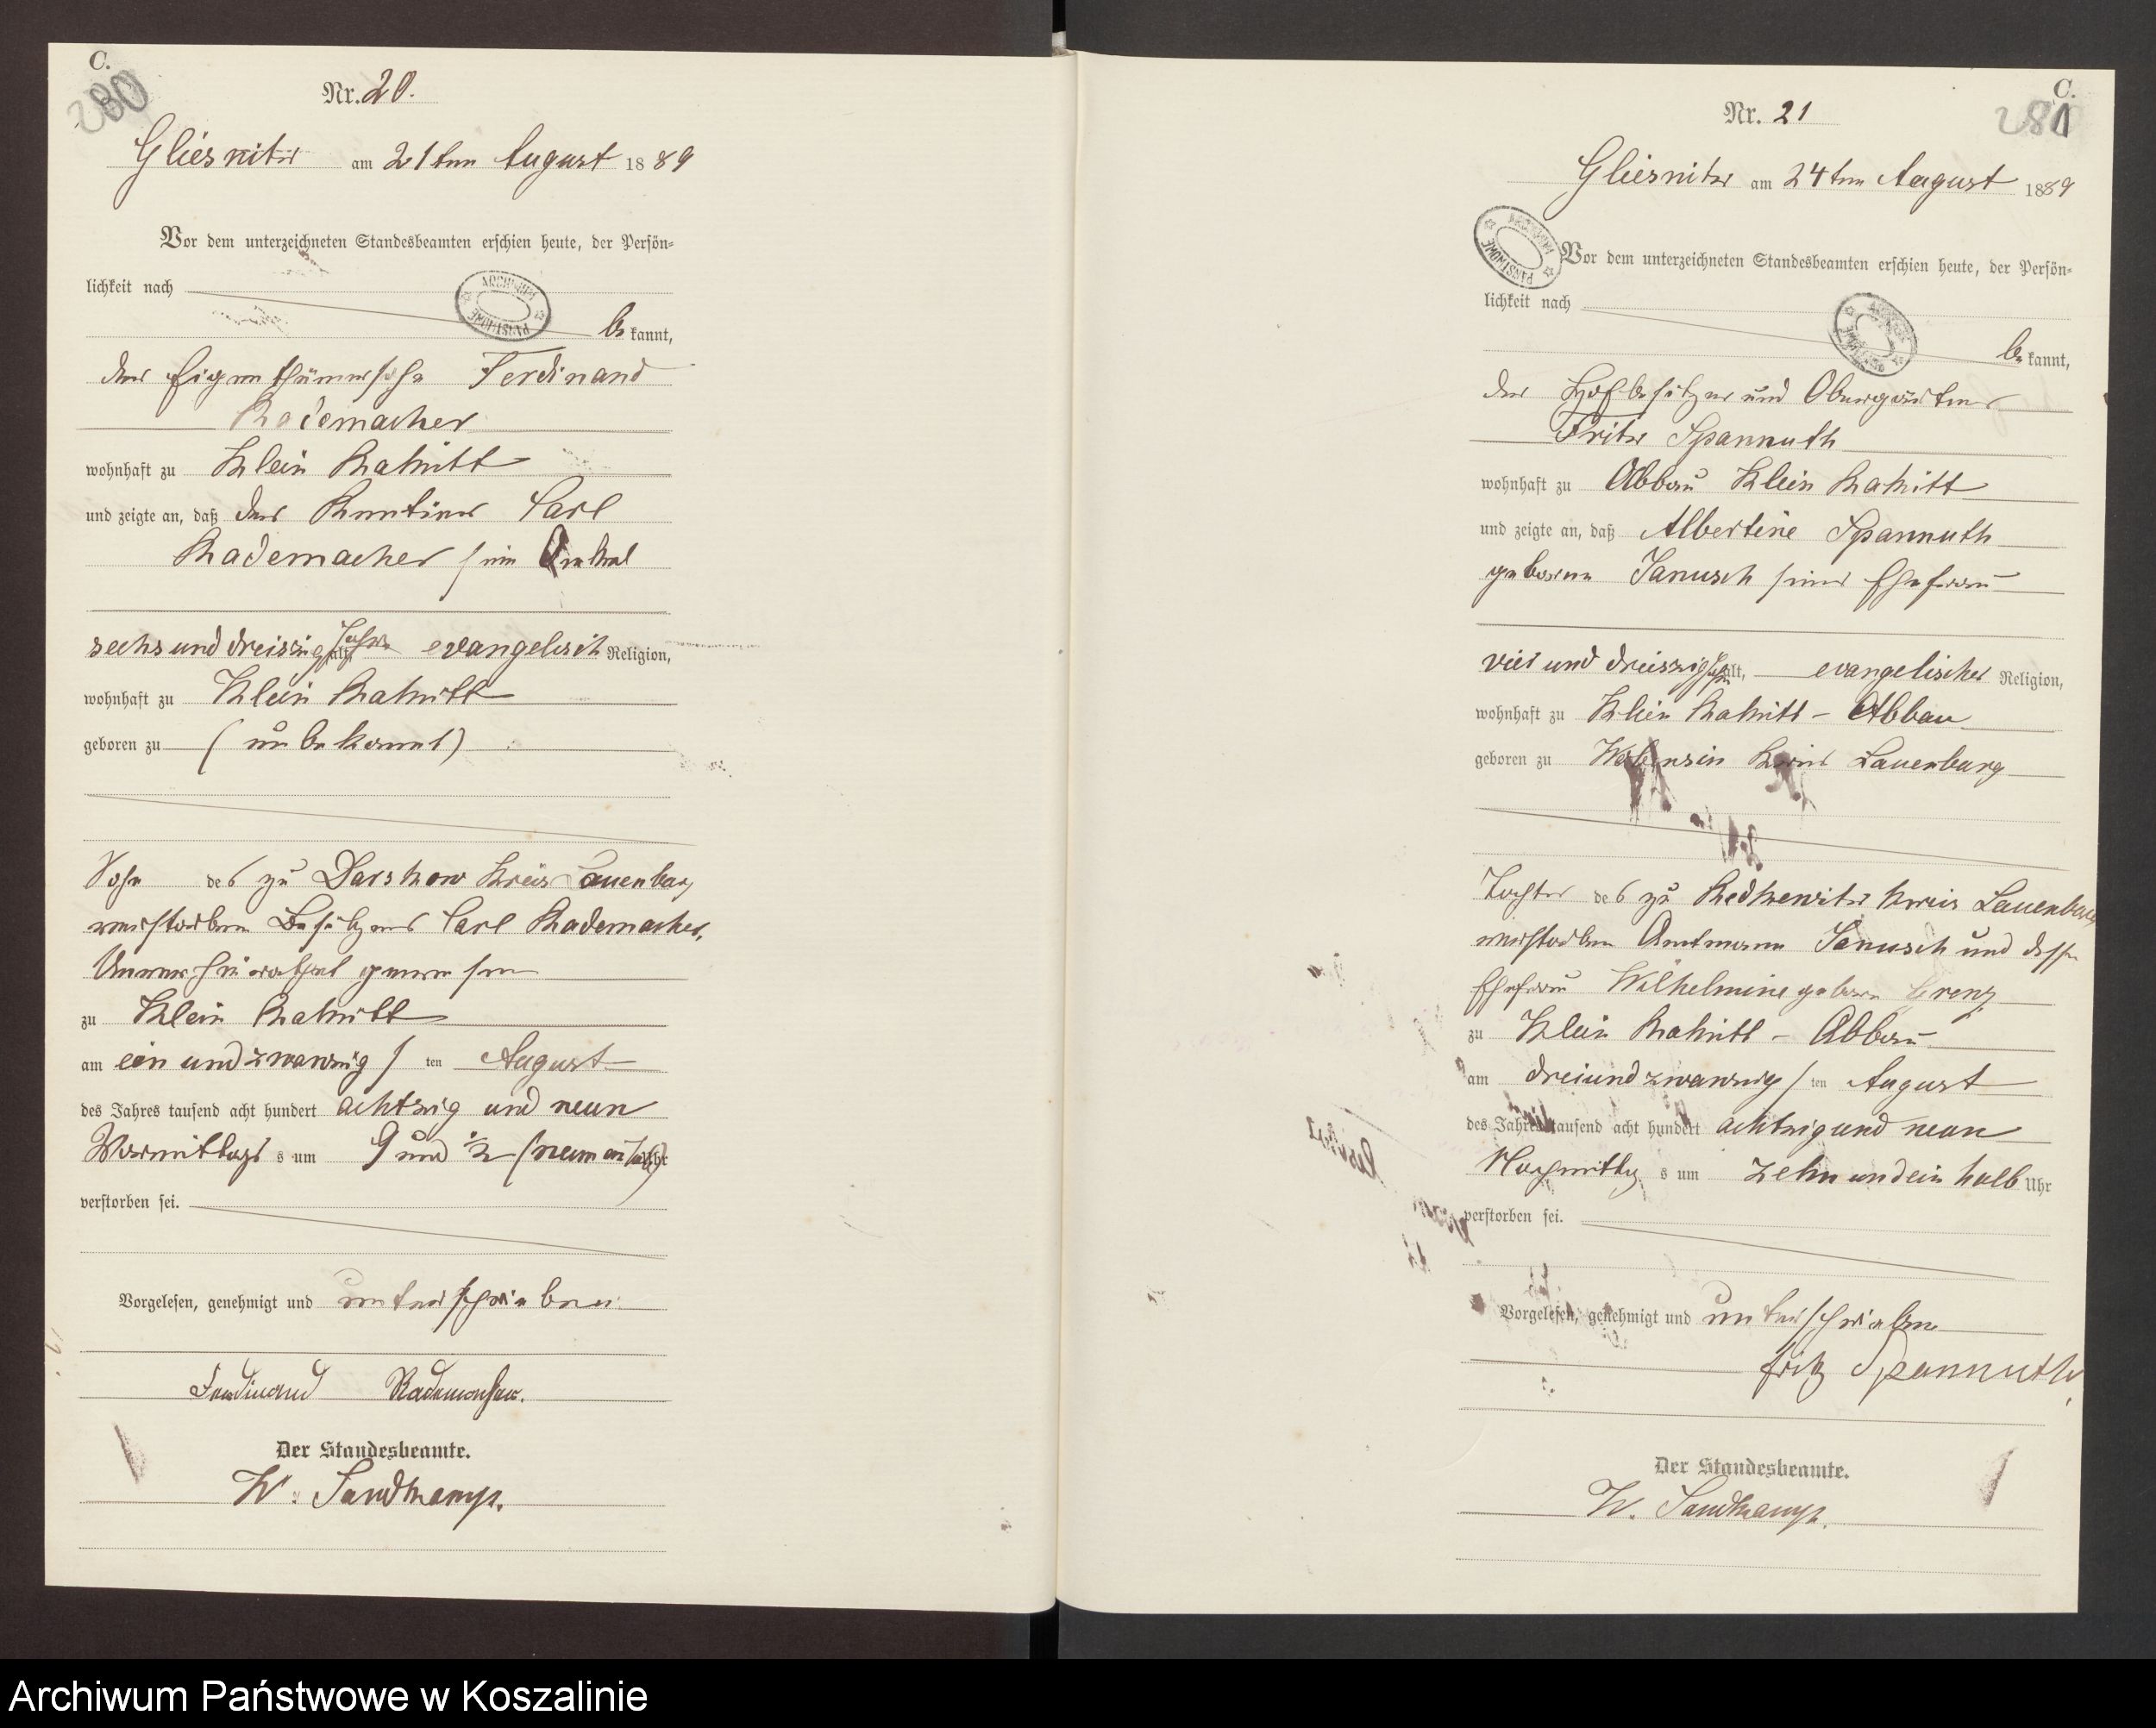 C.
280
Nr. 20.
Gliesnitz am 21ten August 1889
Vor dem unterzeichneten Standesbeamten erschien heute, der Persön-
lichkeit nach
bekannt,
der Eigenthümersohn Ferdinand
Rademacher
wohnhaft zu Klein Rakitt
und zeigte an, daß der Rentier Carl
Rademacher sein Onkel
sechs und dreiszig Jahre alt, evangelisch Religion,
wohnhaft zu Klein Rakitt
geboren zu (unbekannt)
Sohn des zu Darskow Kreis Lauenburg
verstorbenen Besitzers Carl Rademacher,
Unverheirathet gewesen
zu Klein Rakitt
am ein und zwanzig ten August
des Jahres tausend acht hundert achtzig und neun
Vormittags um 9 und ½ (neun Uhr
verstorben sei.
Vorgelesen, genehmigt und unterschrieben
Ferdinand Rademacher.
Der Standesbeamte.
W. Sandkamp.
C.
281
Nr. 21
Gliesnitz am 24ten August 1889
Vor dem unterzeichneten Standesbeamten erschien heute, der Persön-
lichkeit nach
bekannt,
der Hofbesitzer und Obergärtner
Fritz Spannuth
wohnhaft zu Abbau Klein Rakitt
und zeigte an, daß Albertine Spannuth
geborene Janusch seine Ehefrau
vier und dreiszig Jahre alt, evangelischer Religion,
wohnhaft zu Klein Rakitt - Abbau
geboren zu Wobensin Kreis Lauenburg
Tochter des zu Redkewitz Kreis Lauenburg
verstorben Amtmann Janusch und dessen
Ehefrau Wilhelmine geboren
zu Klein Rakitt - Abbau
am dreiundzwanzig ten August
des Jahres tausend acht hundert achtzig und neun
Nachmittags um zehn und ein halb Uhr
verstorben sei.
Vorgelesen, genehmigt und unterschrieben
Fritz Spannuth
Der Standesbeamte.
W. Sandkamp.
Archiwum Państwowe w Koszalinie